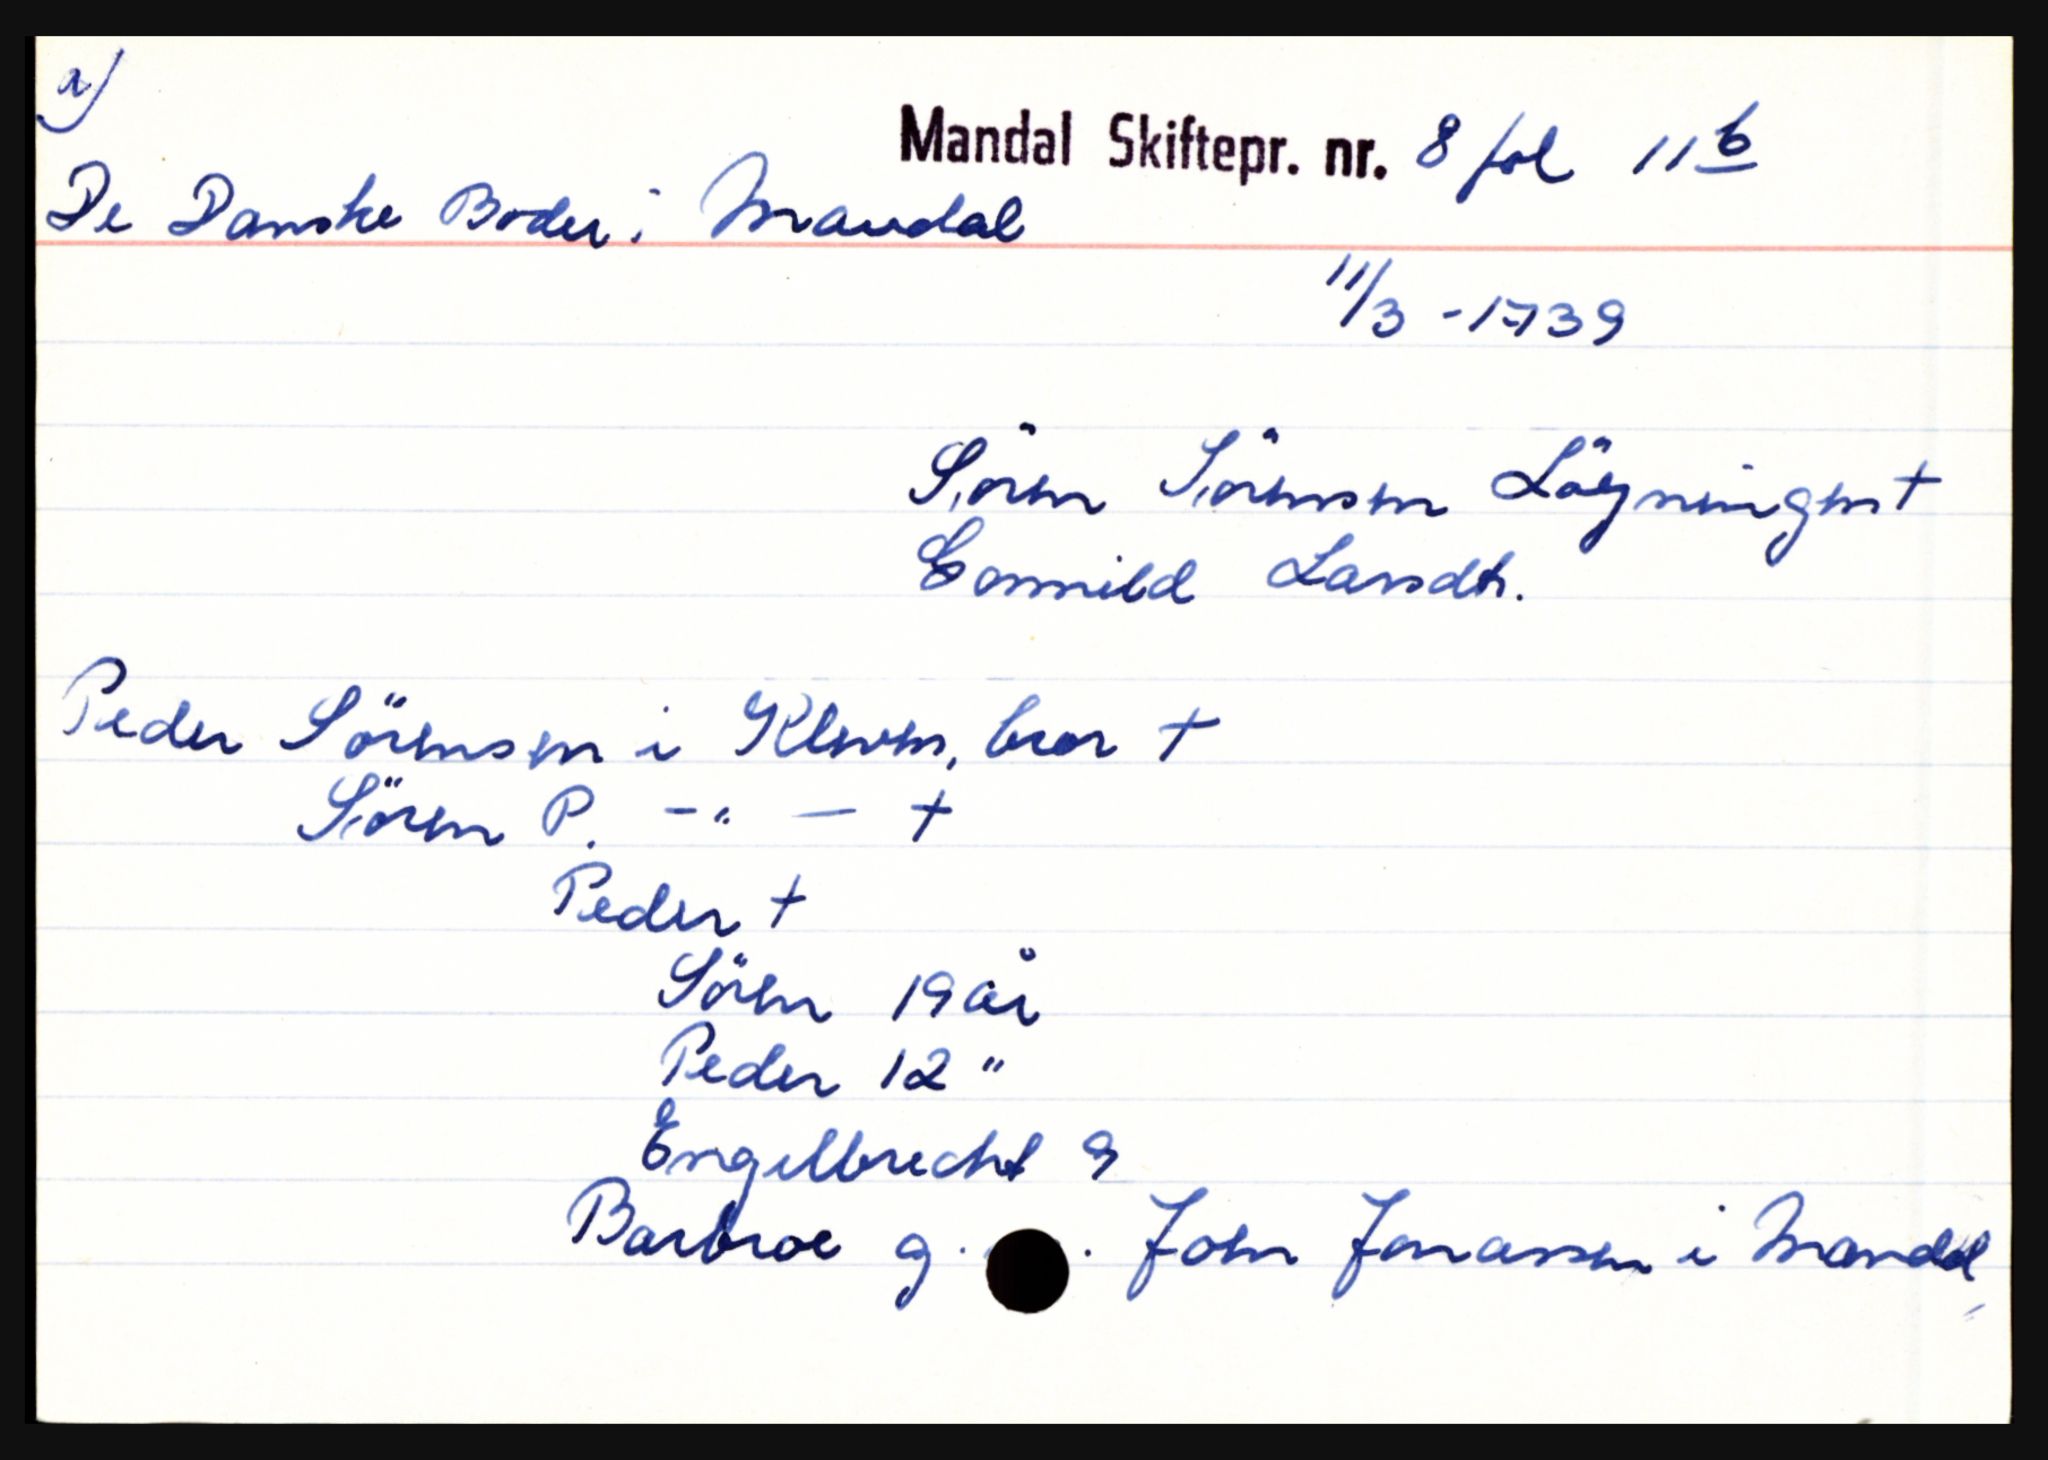 a)
Mandal Skiftepr. nr. 8 fol 11b
De Danske Boder i Mandal
11/3 - 1739
Sören Sörensen Lögningen †
Gonnild Larsdtr.
Peder Sörensen i Kleven, bror †
Sören P. -"- †
Peder †
Sören 19 år
Peder 12 "
Engelbrecht 9
Barbroe g. John Jonassen i Mandal